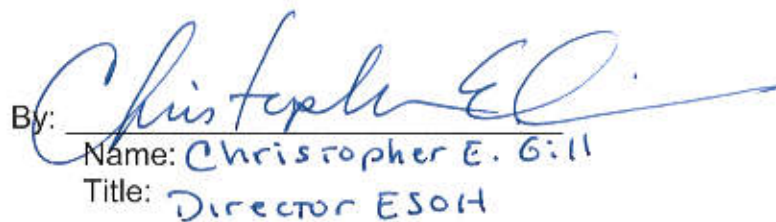 By: Christopher E. Gill
Name: Christopher E. Gill
Title: Director ESOH